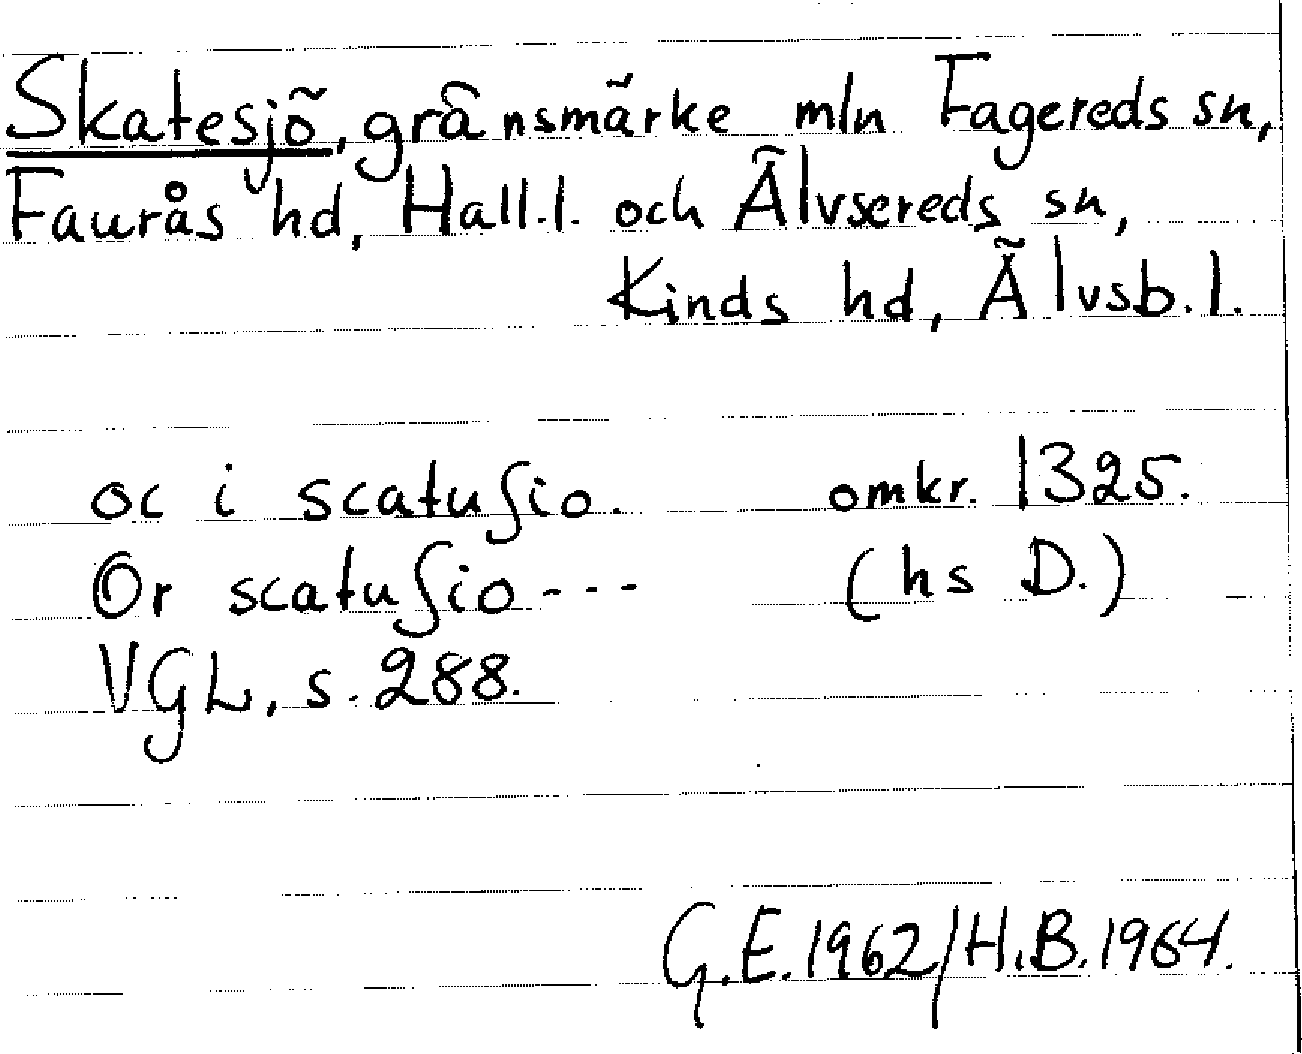 Skatesjö, gränsmärke mln Fagereds sn,
Faurås hd, Hall.l. och Älvsereds sn,
Kinds hd, Älvsb.l.
oc i scatuſio. omkr. 1325.
Or scatuſio --- (hs D.)
VGL, s. 288.
G.E. 1962/H.B. 1964.